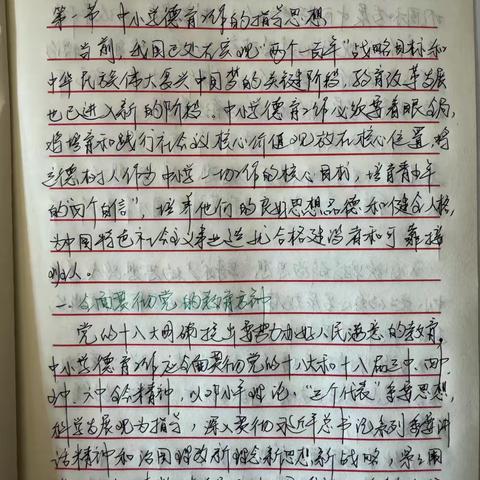 第一节 中小学德育工作的指导思想
当前，我国已处在实现“两个一百年”战略目标和
中华民族伟大复兴中国梦的关键阶段，教育改革发展
也已进入新的阶段。中小学德育工作必须着眼全局，
将培育和践行社会主义核心价值观放在核心位置，将
立德树人作为中小学一切工作的核心目标，培育青少年
的“四个自信”，培养他们的良好思想品德和健全人格，
为中国特色社会主义事业造就合格建设者和可靠接
班人。
一、全面贯彻党的教育方针
党的十八大明确提出要努力办好人民满意的教育。
中小学德育工作应全面贯彻党的十八大和十八届三中、四中、
五中、六中全会精神，以邓小平理论、“三个代表”重要思想、
科学发展观为指导，深入贯彻习近平总书记系列重要讲
话精神和治国理政新理念新思想新战略，